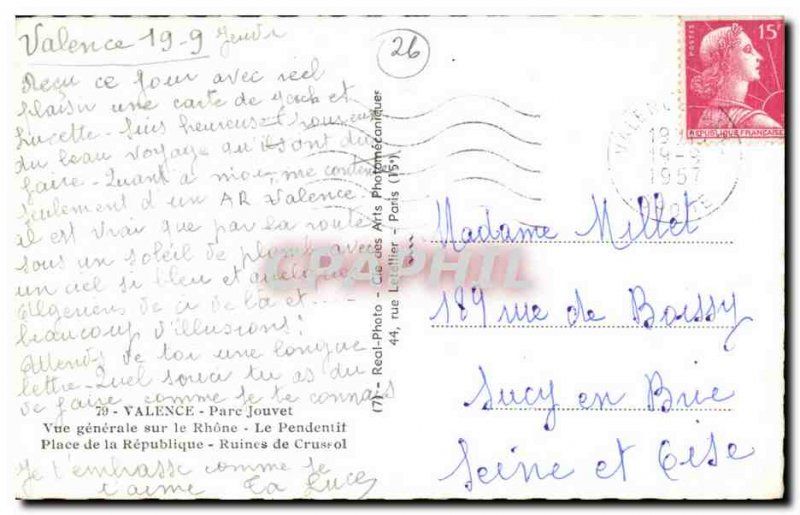 Valence 19-9 Jeudi
26
Reçu ce jour avec réel
plaisir une carte de et
Lucette - Suis heureuse
du beau voyage qu'ils ont dû
faire - Quant à moi, me contente
seulement d'un AR Valence.
il est vrai que par la route
sous un soleil de plomb, avec
un ciel si bleu et quelques
Algériens de ci de là et ....
beaucoup d'illusions!
Attends de toi une longue
lettre - Quel souci tu as du
de faire comme je te connais
79 - VALENCE - Parc Jouvet
Vue générale sur le Rhône - Le Pendentif
Place de la République - Ruines de Crussol
Je t'embrasse comme je
t'aime Ta Luce
(7) - Real-Photo - Cie des Arts Photomécaniques
44, rue Letellier - Paris (15°)
POSTES 15F
REPUBLIQUE FRANÇAISE
VALENCE
19-9
1957
CPAPHIL.com
Madame Millet
189 rue de Boissy
Sucy en Brie
Seine et Oise